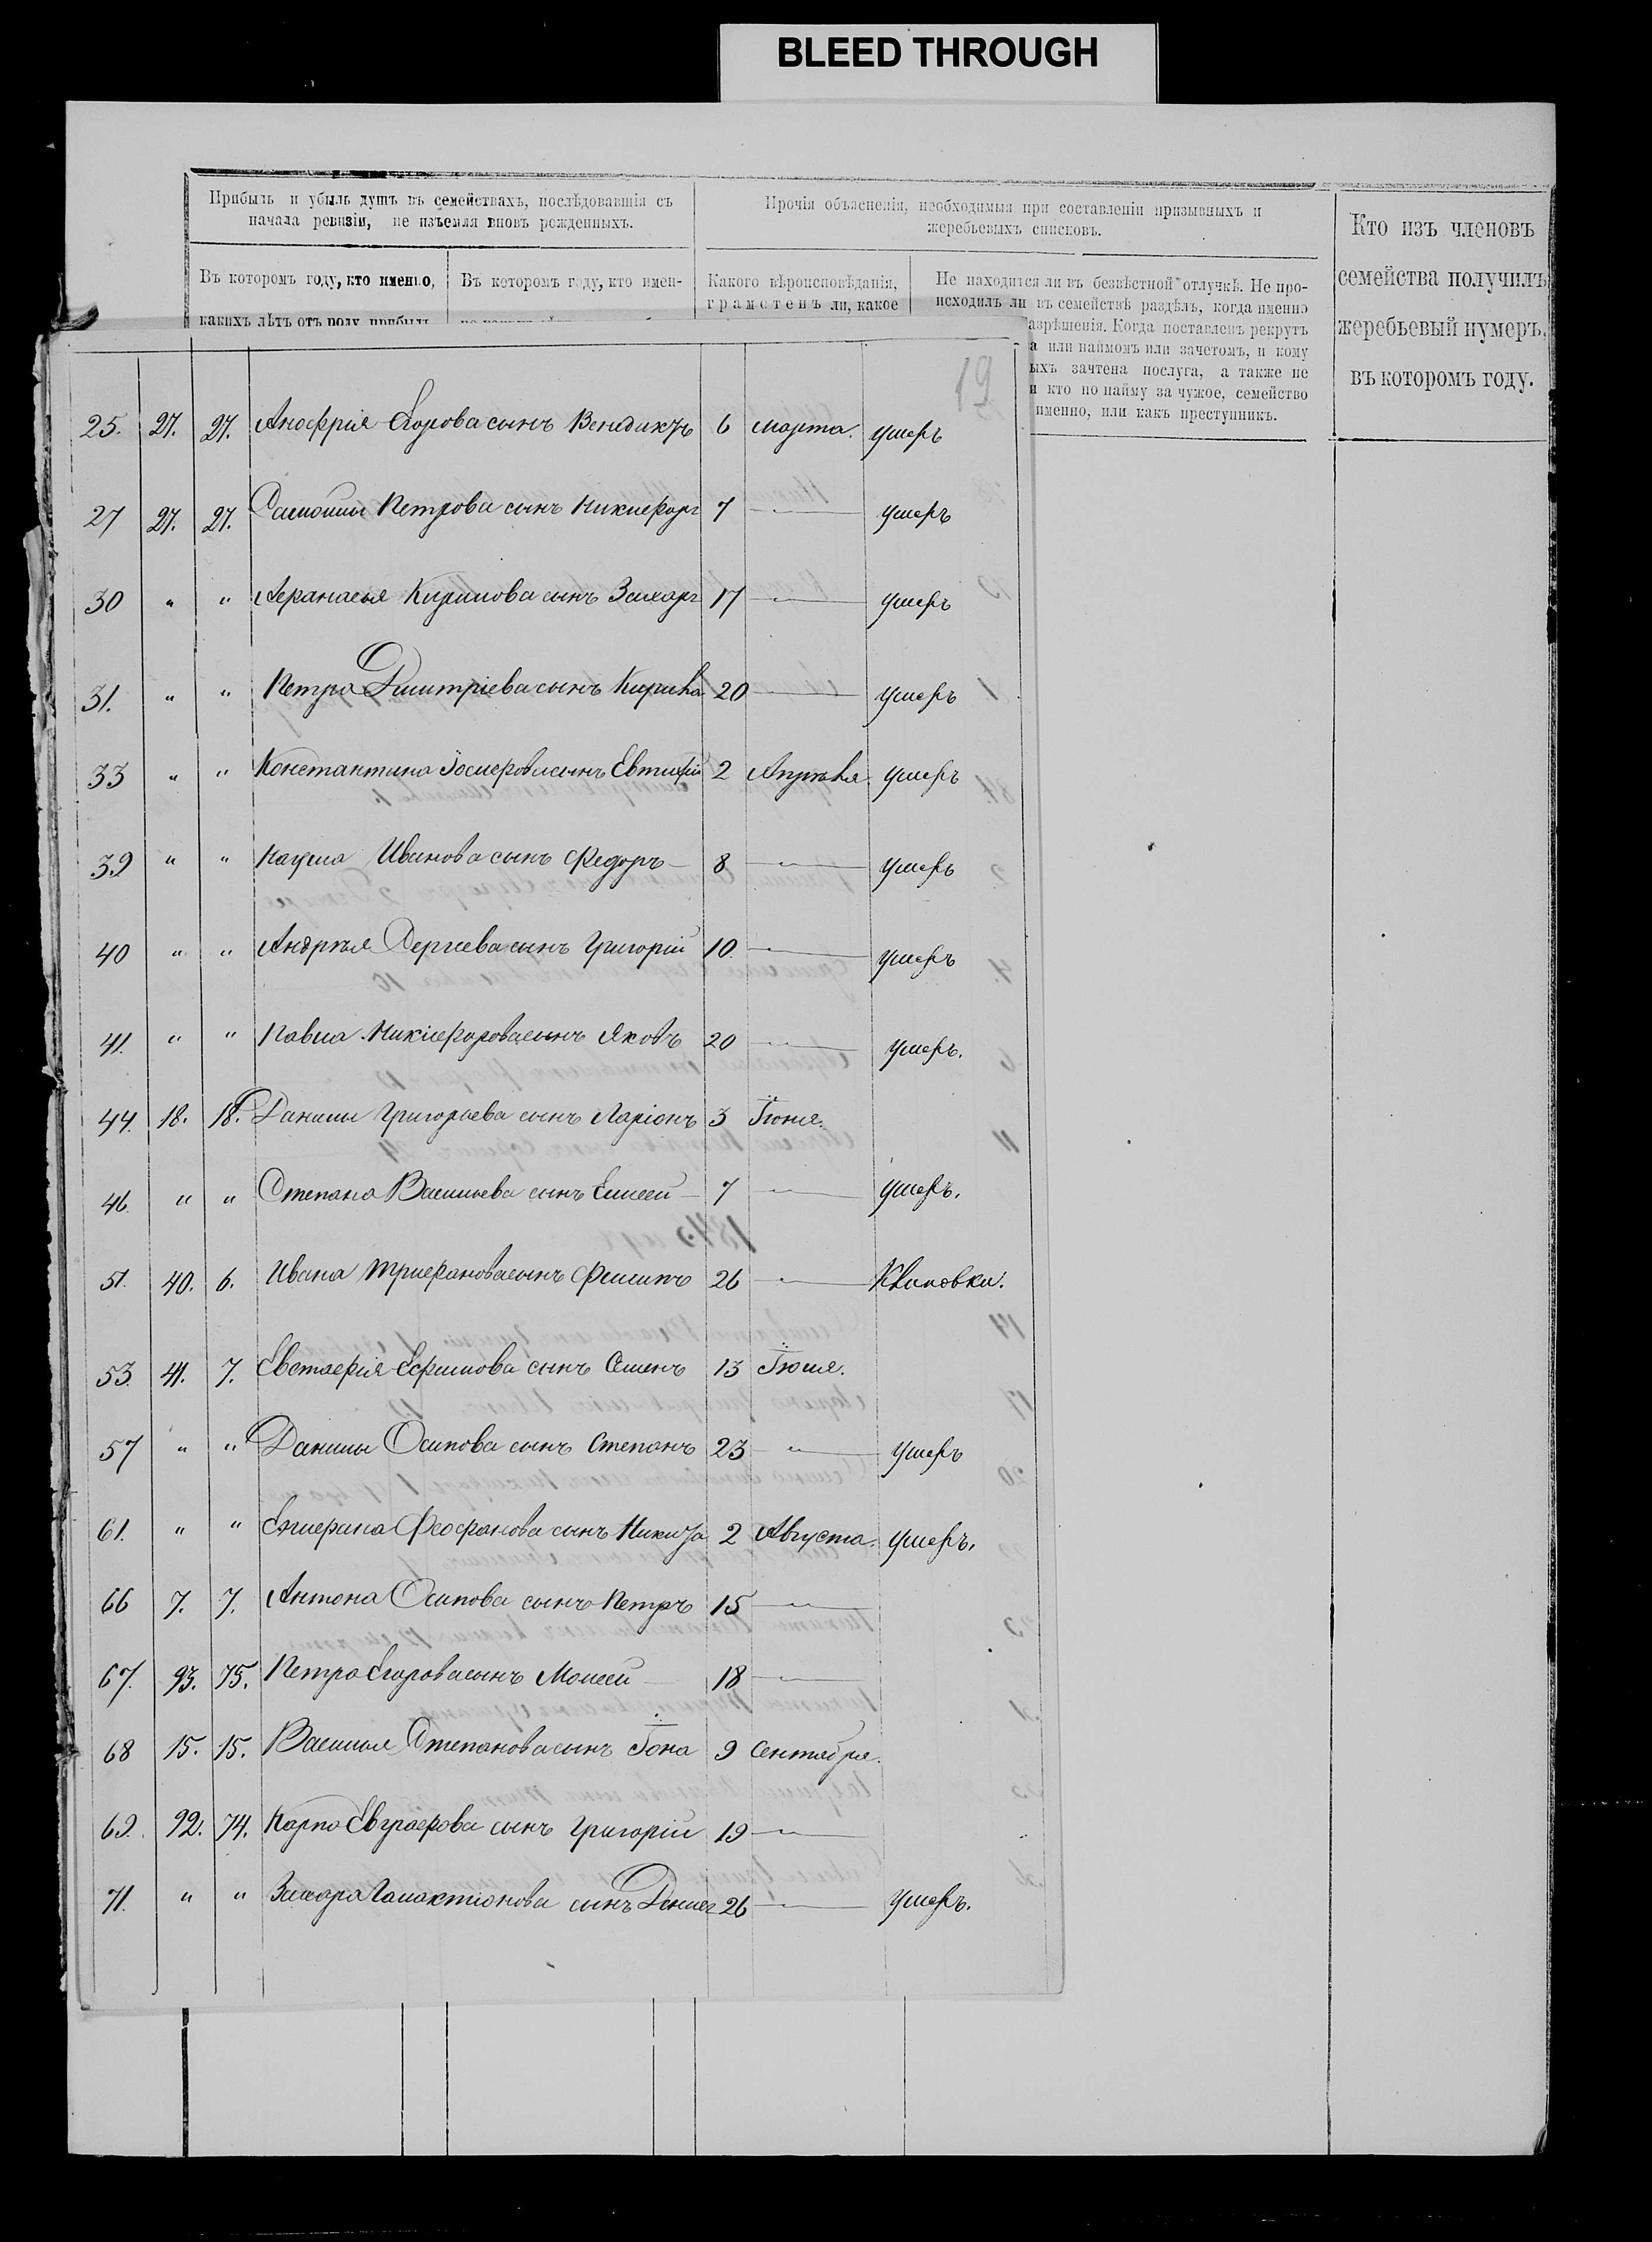 BLEED THROUGH
Прибыль и убыль душъ въ семействахъ, послѣдовавшія съ
начала ревизіи, не изъемля вновь рожденныхъ.
Прочія объясненія, необходимыя при составленіи призывныхъ и
жеребьевыхъ списковъ.
Кто изъ членовъ
семейства получилъ
жеребьевый нумеръ,
въ которомъ году.
Въ которомъ году, кто именно,
какихъ лѣтъ отъ роду прибылъ
Въ которомъ году, кто имен-
Какого вѣроисповѣданія,
грамотенъ ли, какое
Не находится ли въ безвѣстной отлучкѣ. Не про-
исходилъ ли въ семействѣ раздѣлъ, когда именно
азрѣшенія. Когда поставленъ рекрутъ
а или наймомъ или зачетомъ, и кому
ыхъ зачтена послуга, а также не
и кто по найму за чужое, семейство
именно, или какъ преступникъ.
19
25. 27. 27. Аноффрія Егорова сынъ Венедиктъ 6 марта. умеръ
27 27. 27. Самойлы Петрова сынъ Никифоръ 7 — " — умеръ
30 " " Афанасья Кирилова сынъ Захаръ 17 — " — умеръ
31. " " Петра Дмитріева сынъ Кирила 20 — " — умеръ
33 " " Константина Іосифова сынъ Евтифій 2 Апрѣля умеръ
39 " " Наума Иванова сынъ Федоръ — 8 — " — умеръ
40 " " Андрѣя Сергѣева сынъ Григорій 10. — " — умеръ
41. " " Павла Никифорова сынъ Яковъ 20 — " — умеръ.
44. 18. 18. Данилы Григорьева сынъ Ларіонъ 3 Іюня.
46. " " Степана Васильева сынъ Елисей — 7 — " — умеръ.
51. 40. 6. Ивана Трифанова сынъ Филипъ 26 — " — Клиновки.
53. 41. 7. Евстафія Ефимова сынъ Семенъ 13 Іюля.
57 " " Данилы Осипова сынъ Степанъ 23 — " — умеръ
61. " " Феофанова сынъ Никита 2 Августа. умеръ.
66 7. 7. Антона Осипова сынъ Петръ 15 — " —
67. 93. 75. Петра Егорова сынъ Моисей — 18 — " —
68 15. 15. Василья Степанова сынъ Іона 9 Сентября.
69. 92. 74. Карпа Евграфова сынъ Григорій 19 — " —
71. " " Захара Галактіонова сынъ Денисъ 26 — " — умеръ.